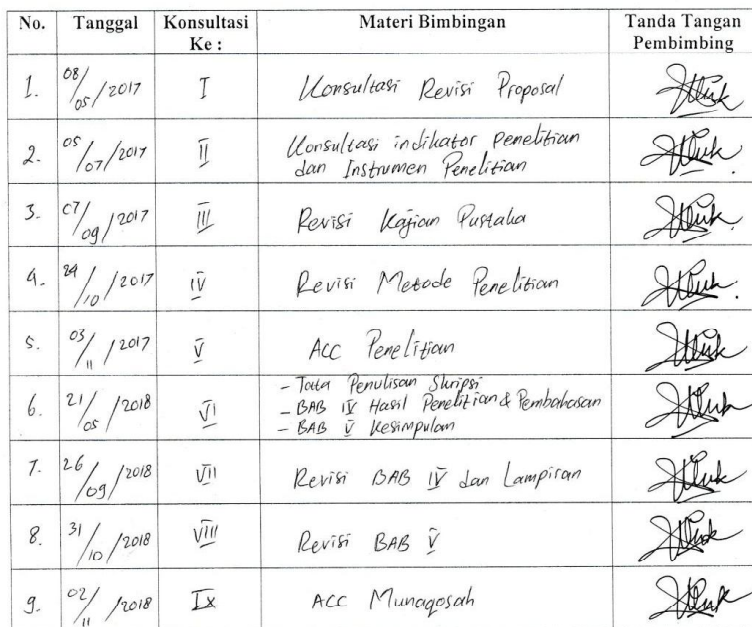 No. Tanggal Konsultasi Ke : Materi Bimbingan Tanda Tangan Pembimbing
1. 08/05/2017 I Konsultasi Revisi Proposal
2. 05/07/2017 II Konsultasi indikator penelitian
dan Instrumen Penelitian
3. 07/09/2017 III Revisi Kajian Pustaka
4. 24/10/2017 IV Revisi Metode Penelitian
5. 03/11/2017 V ACC Penelitian
6. 21/05/2018 VI - Tata Penulisan Skripsi
- BAB IV Hasil Penelitian & Pembahasan
- BAB V Kesimpulan
7. 26/09/2018 VII Revisi BAB IV dan Lampiran
8. 31/10/2018 VIII Revisi BAB V
9. 02/11/2018 IX ACC Munaqosah